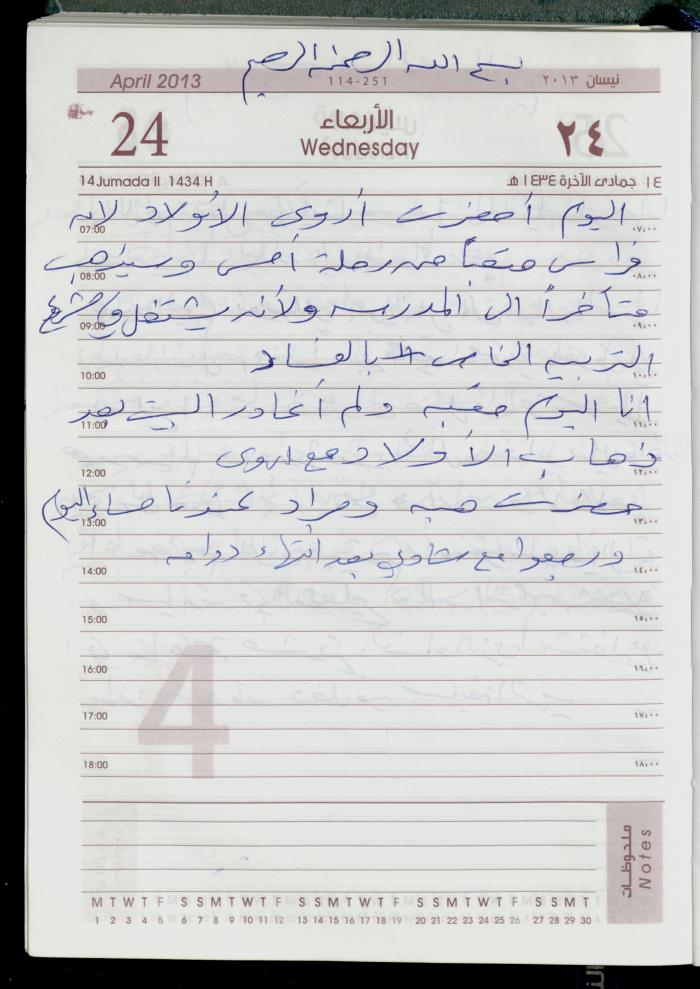 بسم الله الرحمن الرحيم
April 2013 114-251 نيسان ٢٠١٣
24 الأربعاء ٢٤
Wednesday
14 Jumada II 1434 H ١٤ جمادى الآخرة ١٤٣٤ هـ
اليوم أحضرت أروى الأولاد لأنه
07:00 ٠٧:٠٠
فراس متعباً من رحلة أمس وسيذهب
08:00 ٠٨:٠٠
متأخراً الى المدرسه ولأنه يشتغل في مشروع
09:00 ٠٩:٠٠
التربيه الخاص بالفساد
10:00 ١٠:٠٠
انا اليوم متعبه ولم أغادر البيت بعد
11:00 ١١:٠٠
ذهاب الأولاد مع اروى
12:00 ١٢:٠٠
حضرت هبه ومراد عندنا مساء اليوم
13:00 ١٣:٠٠
ورجعوا مع شادي بعد انتهاء دوامه
14:00 ١٤:٠٠
15:00 ١٥:٠٠
16:00 ١٦:٠٠
17:00 ١٧:٠٠
18:00 ١٨:٠٠
4
ملحوظات
Notes
M T W T F S S M T W T F S S M T W T F S S M T W T F S S M T
1 2 3 4 5 6 7 8 9 10 11 12 13 14 15 16 17 18 19 20 21 22 23 24 25 26 27 28 29 30